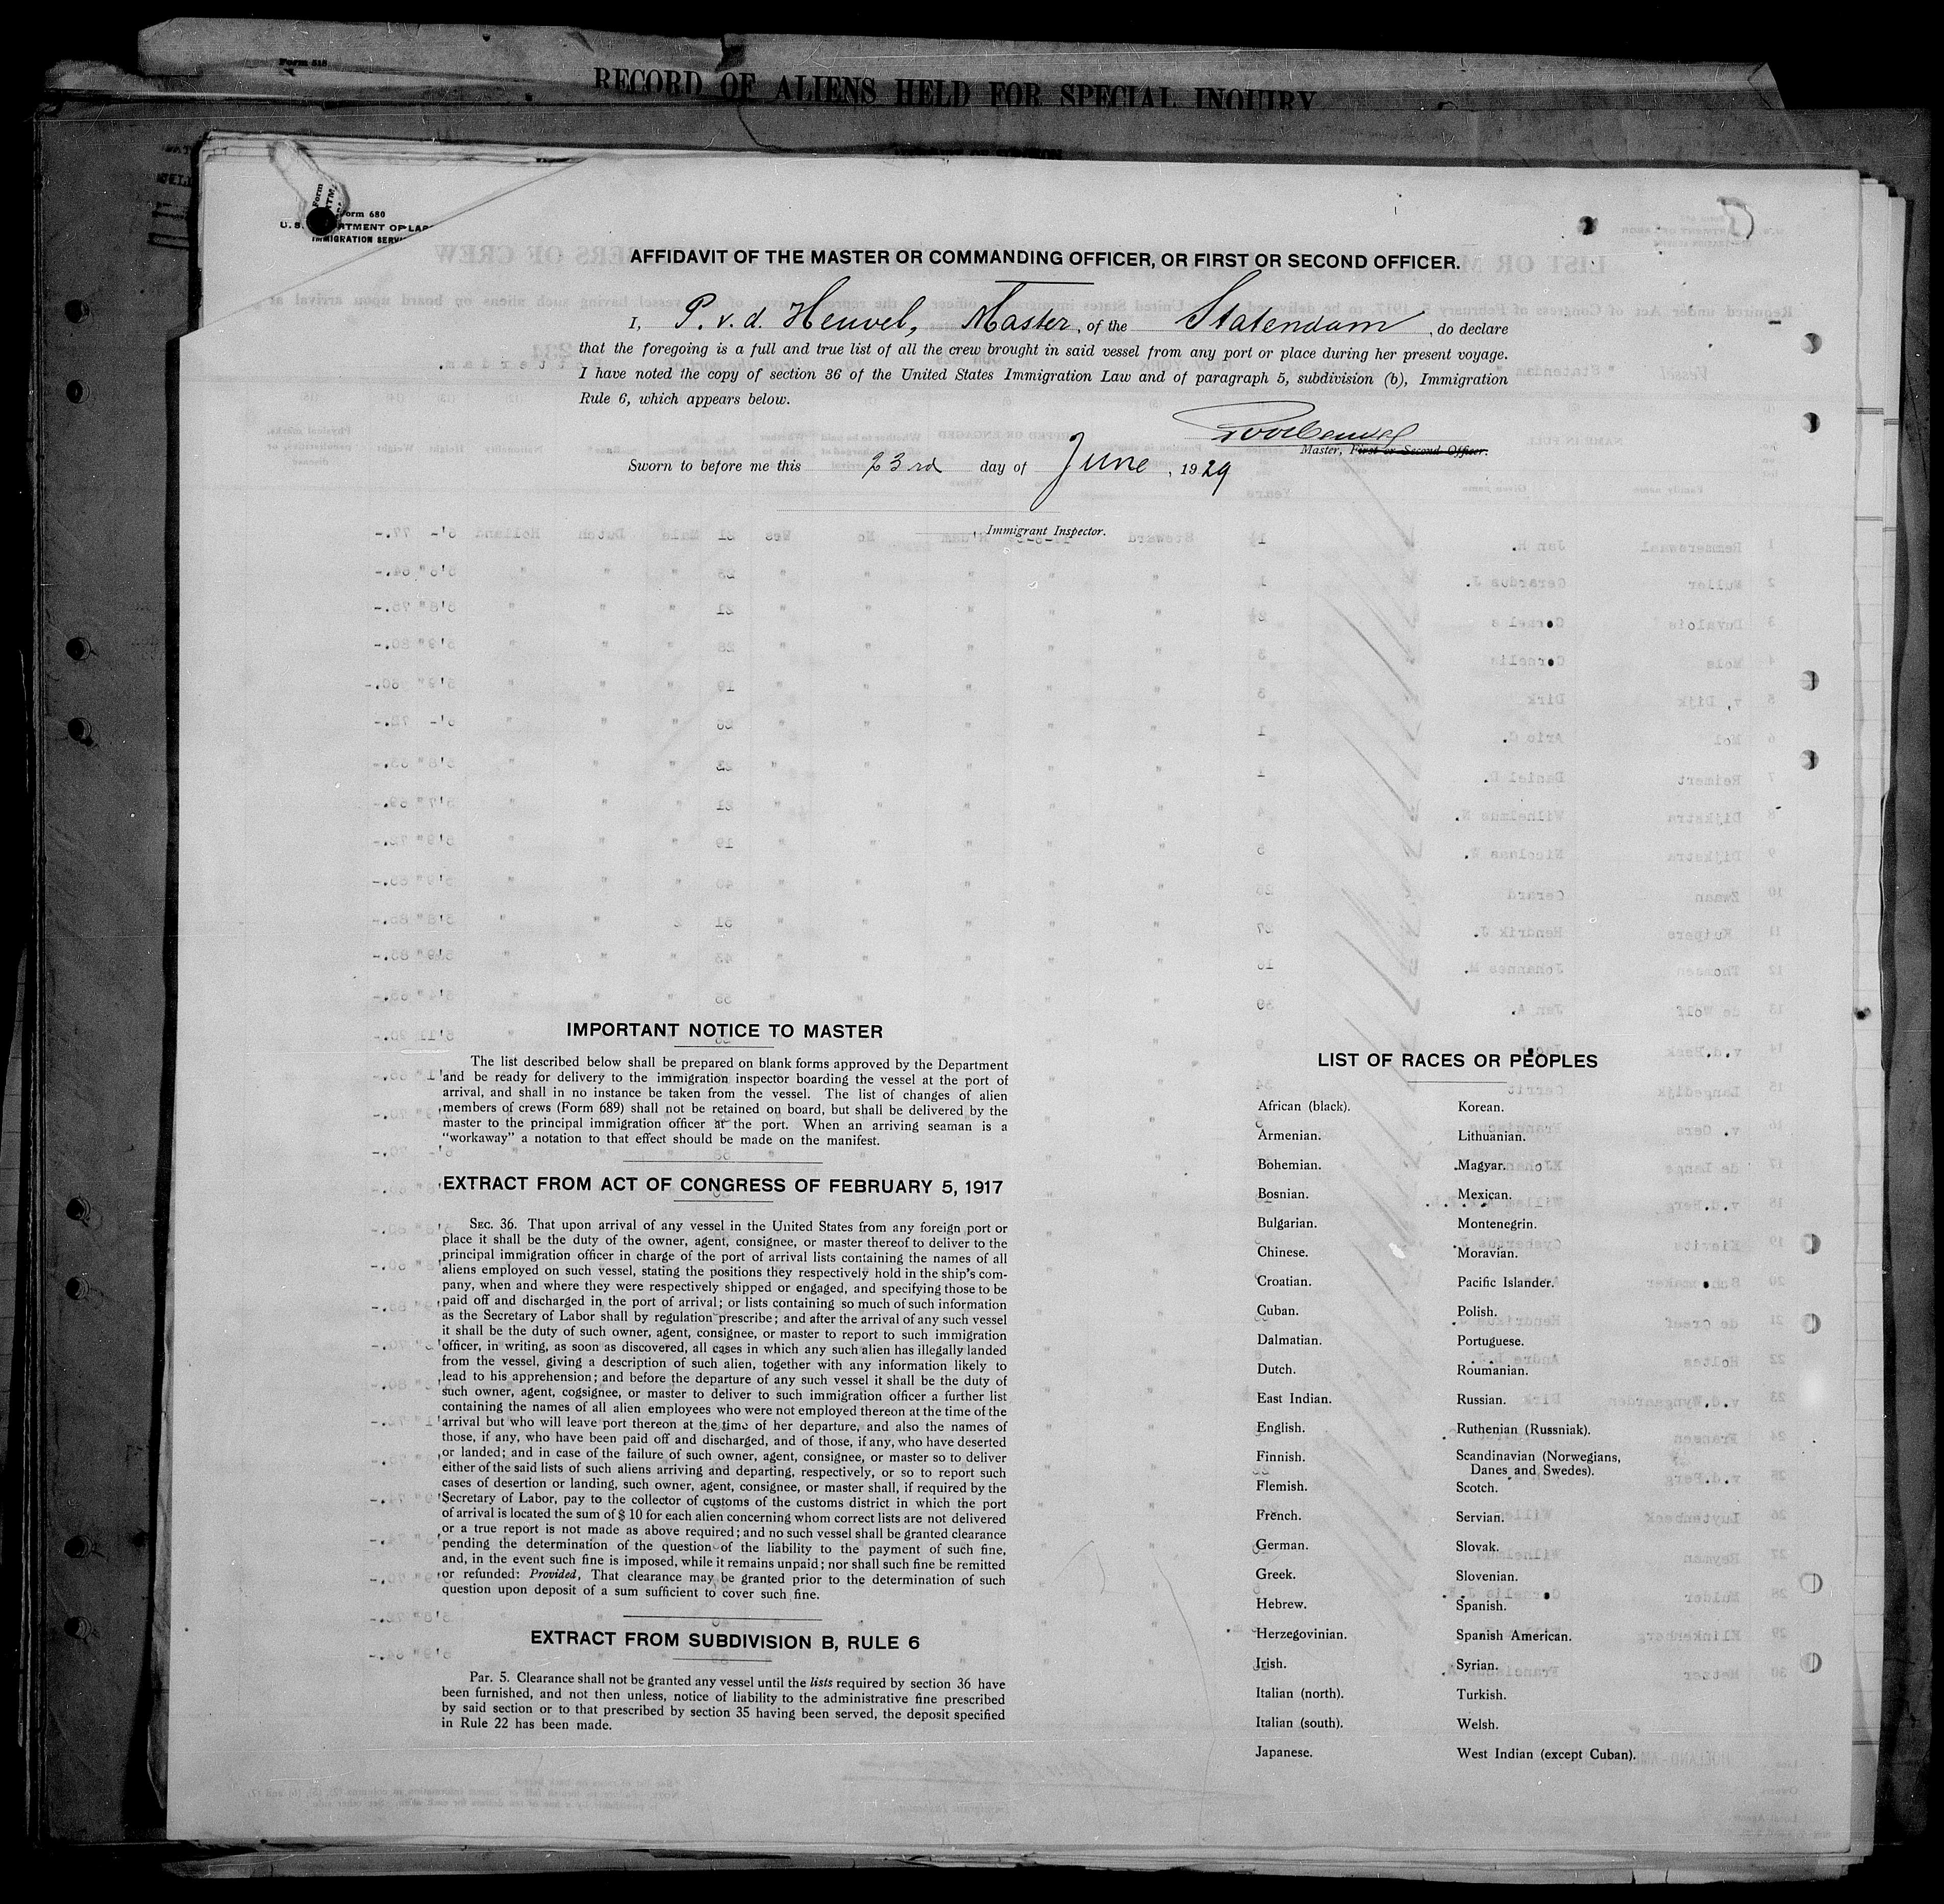 Form 515
RECORD OF ALIENS HELD FOR SPECIAL INQUIRY
Form 680
U. S.
IMMIGRATION
AFFIDAVIT OF THE MASTER OR COMMANDING OFFICER, OR FIRST OR SECOND OFFICER.
I, P. v. d. Heuvel, Master, of the Statendam, do declare
that the foregoing is a full and true list of all the crew brought in said vessel from any port or place during her present voyage.
I have noted the copy of section 36 of the United States Immigration Law and of paragraph 5, subdivision (b), Immigration
Rule 6, which appears below.
Master, First or Second Officer.
Sworn to before me this 23rd day of June, 1929
, Immigrant Inspector.
IMPORTANT NOTICE TO MASTER
The list described below shall be prepared on blank forms approved by the Department
and be ready for delivery to the immigration inspector boarding the vessel at the port of
arrival, and shall in no instance be taken from the vessel. The list of changes of alien
members of crews (Form 689) shall not be retained on board, but shall be delivered by the
master to the principal immigration officer at the port. When an arriving seaman is a
"workaway" a notation to that effect should be made on the manifest.
EXTRACT FROM ACT OF CONGRESS OF FEBRUARY 5, 1917
SEC. 36. That upon arrival of any vessel in the United States from any foreign port or
place it shall be the duty of the owner, agent, consignee, or master thereof to deliver to the
principal immigration officer in charge of the port of arrival lists containing the names of all
aliens employed on such vessel, stating the positions they respectively hold in the ship's com-
pany, when and where they were respectively shipped or engaged, and specifying those to be
paid off and discharged in the port of arrival; or lists containing so much of such information
as the Secretary of Labor shall by regulation prescribe; and after the arrival of any such vessel
it shall be the duty of such owner, agent, consignee, or master to report to such immigration
officer, in writing, as soon as discovered, all cases in which any such alien has illegally landed
from the vessel, giving a description of such alien, together with any information likely to
lead to his apprehension; and before the departure of any such vessel it shall be the duty of
such owner, agent, cogsignee, or master to deliver to such immigration officer a further list
containing the names of all alien employees who were not employed thereon at the time of the
arrival but who will leave port thereon at the time of her departure, and also the names of
those, if any, who have been paid off and discharged, and of those, if any, who have deserted
or landed; and in case of the failure of such owner, agent, consignee, or master so to deliver
either of the said lists of such aliens arriving and departing, respectively, or so to report such
cases of desertion or landing, such owner, agent, consignee, or master shall, if required by the
Secretary of Labor, pay to the collector of customs of the customs district in which the port
of arrival is located the sum of $ 10 for each alien concerning whom correct lists are not delivered
or a true report is not made as above required; and no such vessel shall be granted clearance
pending the determination of the question of the liability to the payment of such fine,
and, in the event such fine is imposed, while it remains unpaid; nor shall such fine be remitted
or refunded: Provided, That clearance may be granted prior to the determination of such
question upon deposit of a sum sufficient to cover such fine.
EXTRACT FROM SUBDIVISION B, RULE 6
Par. 5. Clearance shall not be granted any vessel until the lists required by section 36 have
been furnished, and not then unless, notice of liability to the administrative fine prescribed
by said section or to that prescribed by section 35 having been served, the deposit specified
in Rule 22 has been made.
LIST OF RACES OR PEOPLES
African (black).
Armenian.
Bohemian.
Bosnian.
Bulgarian.
Chinese.
Croatian.
Cuban.
Dalmatian.
Dutch.
East Indian.
English.
Finnish.
Flemish.
French.
German.
Greek.
Hebrew.
Herzegovinian.
Irish.
Italian (north).
Italian (south).
Japanese.
Korean.
Lithuanian.
Magyar.
Mexican.
Montenegrin.
Moravian.
Pacific Islander.
Polish.
Portuguese.
Roumanian.
Russian.
Ruthenian (Russniak).
Scandinavian (Norwegians,
Danes and Swedes).
Scotch.
Servian.
Slovak.
Slovenian.
Spanish.
Spanish American.
Syrian.
Turkish.
Welsh.
West Indian (except Cuban).